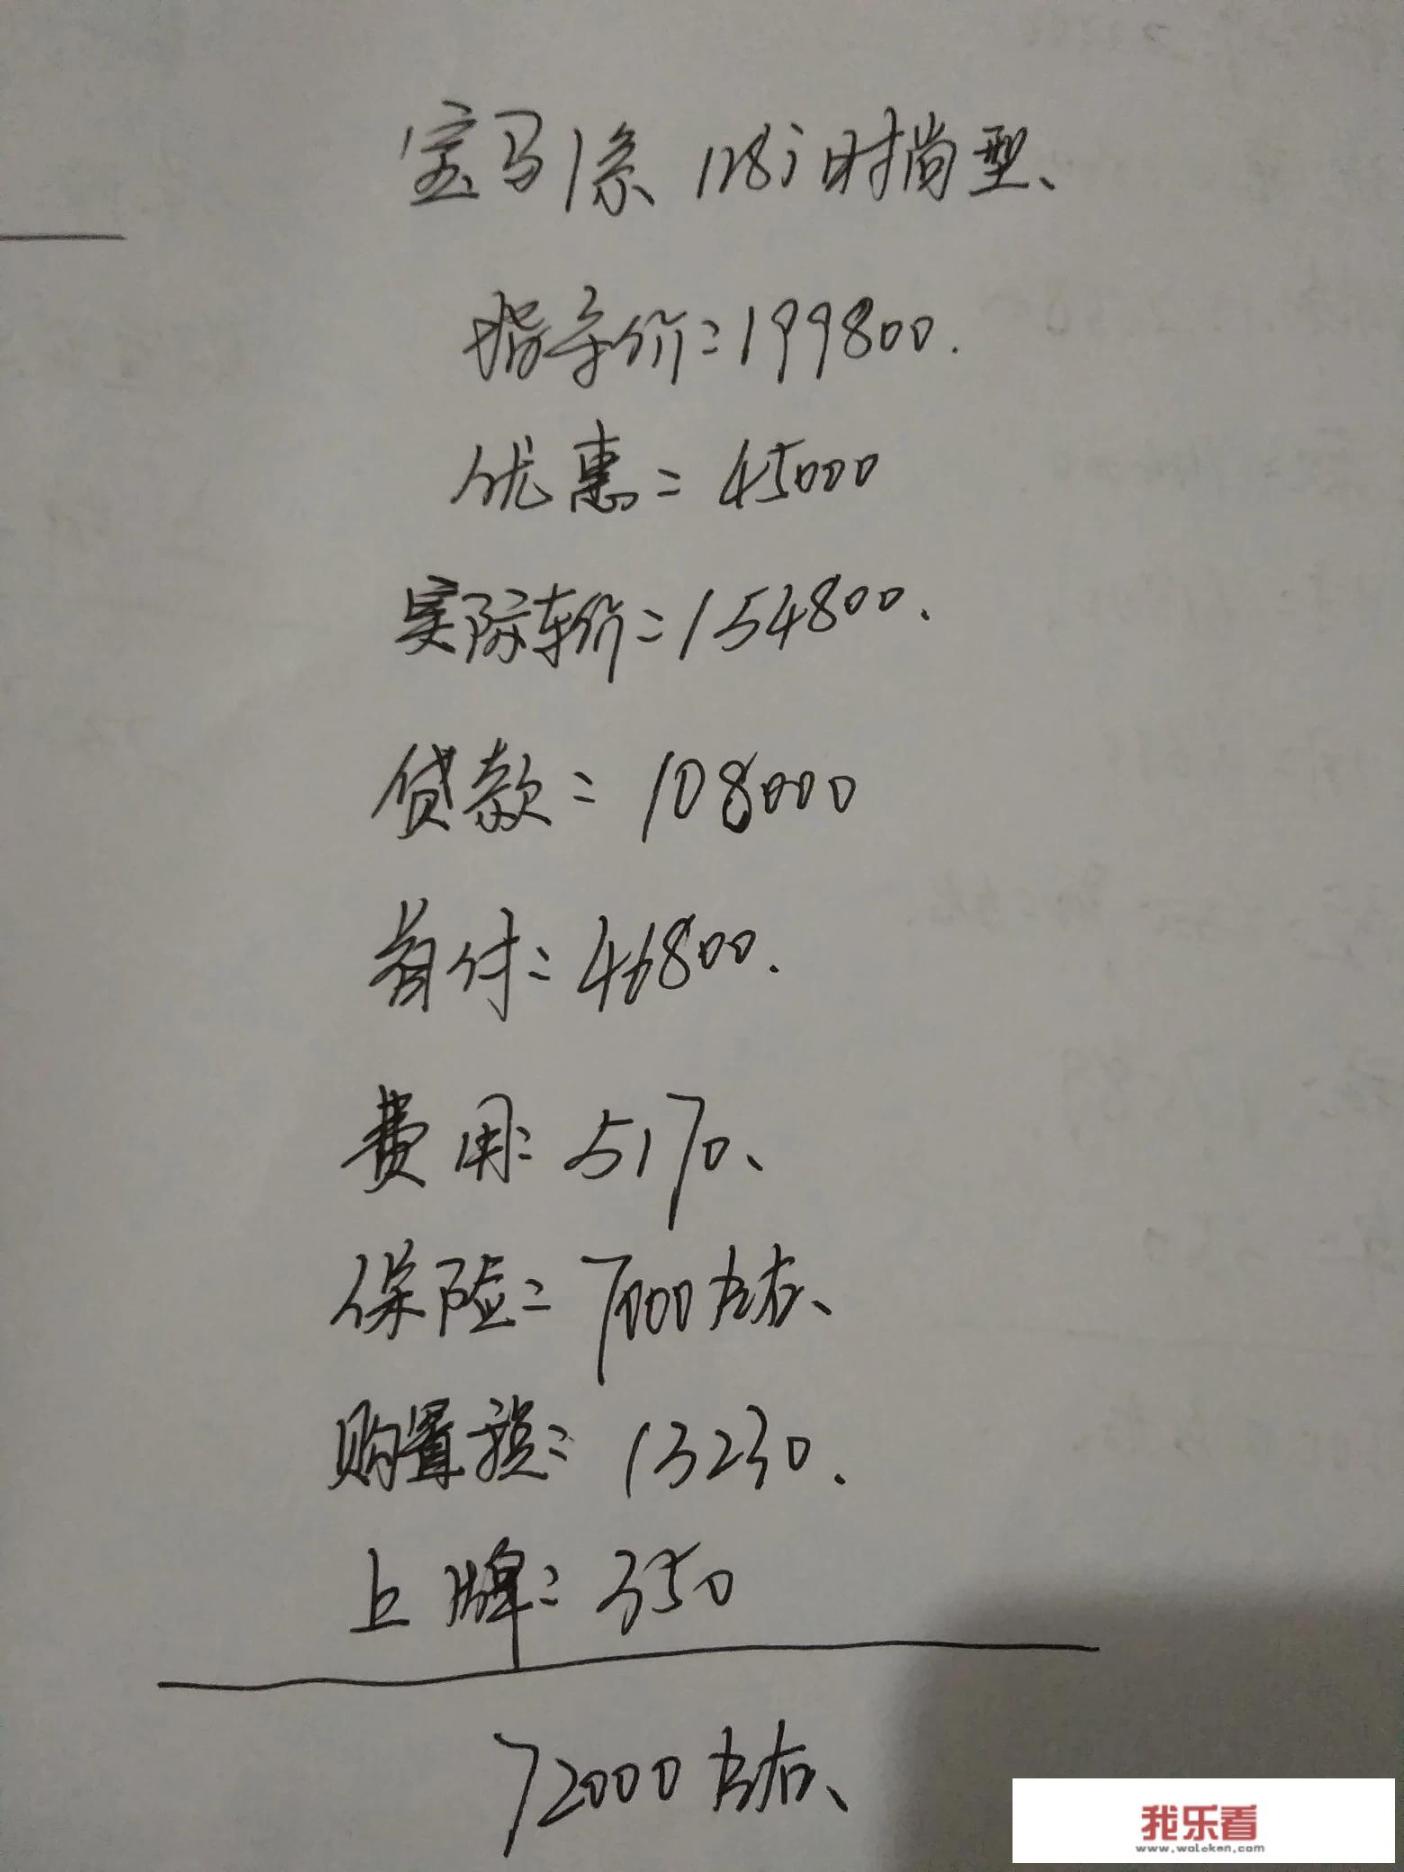 宝马1系 118i时尚型、
指导价=199800.
优惠=45000
实际车价=154800.
贷款=108000
首付=46800.
费用=5170、
保险=7000左右、
购置税=13230.
上牌=350
72000左右、
我乐看
www.woleken.com